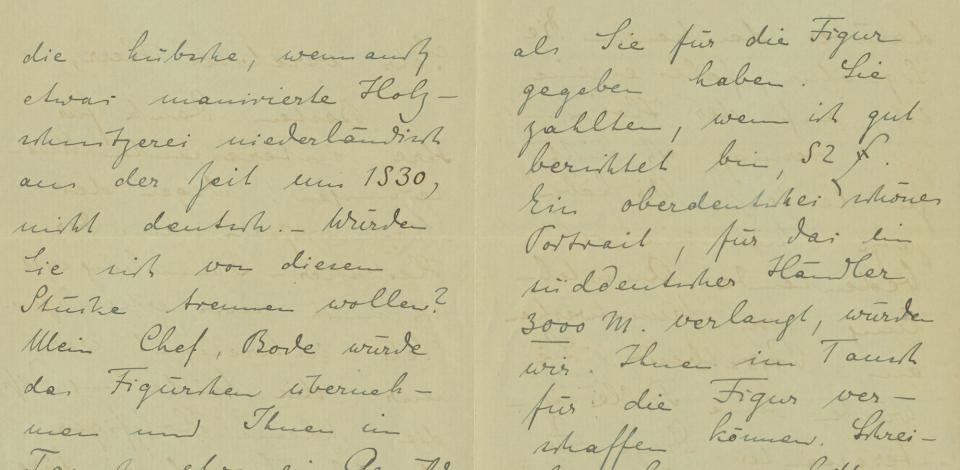 die hübsche, wenn auch
etwas manirierte Holz-
schnitzerei niederländisch
aus der Zeit um 1530,
nicht deutsch. – Würden
Sie sich von diesem
Stücke trennen wollen?
Mein Chef, Bode würde
das Figürchen überneh-
men und Ihnen im
als Sie für die Figur
gegeben haben. Sie
zahlten, wenn ich gut
berichtet bin, 52 £.
Ein oberdeutsches schönes
Portrait, für das ein
süddeutscher Händler
3000 M. verlangt, würden
wir Ihnen im Tausch
für die Figur ver-
schaffen können. Schrei-